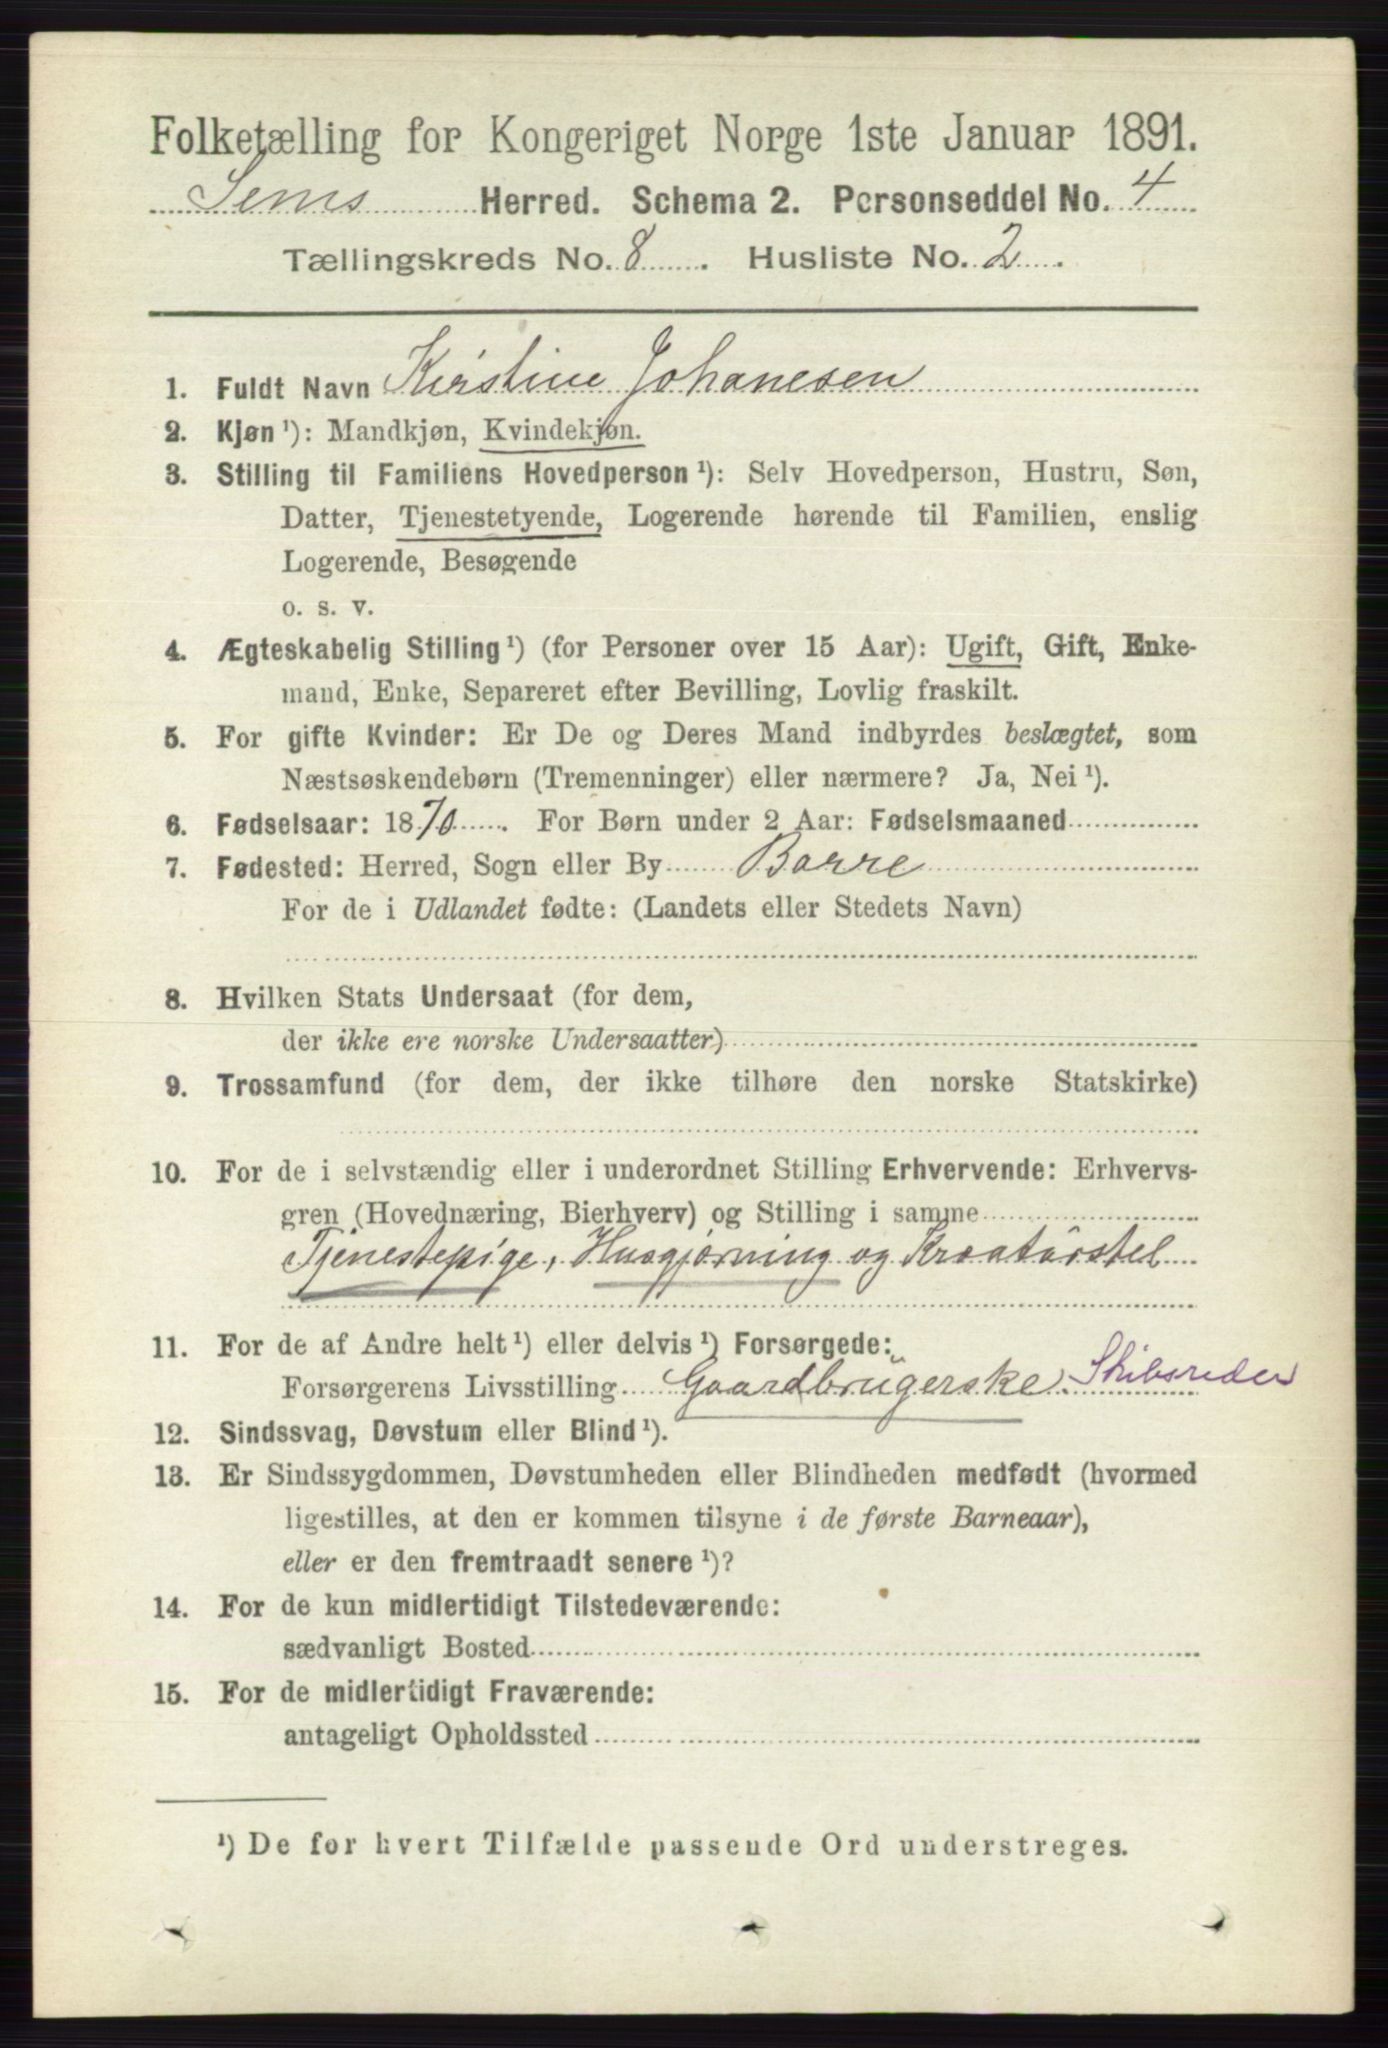 Folketælling for Kongeriget Norge 1ste Januar 1891.
Sems Herred. Schema 2. Personseddel No. 4
Tællingskreds No. 8. Husliste No. 2.
1. Fuldt Navn Kirstine Johanesen
2. Kjøn ¹): Mandkjøn, Kvindekjøn.
3. Stilling til Familiens Hovedperson ¹): Selv Hovedperson, Hustru, Søn,
Datter, Tjenestetyende, Logerende hørende til Familien, enslig
Logerende, Besøgende
o. s. v.
4. Ægteskabelig Stilling ¹) (for Personer over 15 Aar): Ugift, Gift, Enke-
mand, Enke, Separeret efter Bevilling, Lovlig fraskilt.
5. For gifte Kvinder: Er De og Deres Mand indbyrdes beslægtet, som
Næstsøskendebørn (Tremenninger) eller nærmere? Ja, Nei ¹).
6. Fødselsaar: 1870. For Børn under 2 Aar: Fødselsmaaned
7. Fødested: Herred, Sogn eller By Borre
For de i Udlandet fødte: (Landets eller Stedets Navn)
8. Hvilken Stats Undersaat (for dem,
der ikke ere norske Undersaatter)
9. Trossamfund (for dem, der ikke tilhøre den norske Statskirke)
10. For de i selvstændig eller i underordnet Stilling Erhvervende: Erhvervs-
gren (Hovednæring, Bierhverv) og Stilling i samme
Tjenestepige, Husgjørning og Kreatúrstel
11. For de af Andre helt ¹) eller delvis ¹) Forsørgede:
Forsørgerens Livsstilling Gaardbrugerske. Skibsreder
12. Sindssvag, Døvstum eller Blind ¹).
13. Er Sindssygdommen, Døvstumheden eller Blindheden medfødt (hvormed
ligestilles, at den er kommen tilsyne i de første Barneaar),
eller er den fremtraadt senere ¹)?
14. For de kun midlertidigt Tilstedeværende:
sædvanligt Bosted
15. For de midlertidigt Fraværende:
antageligt Opholdssted
¹) De for hvert Tilfælde passende Ord understreges.